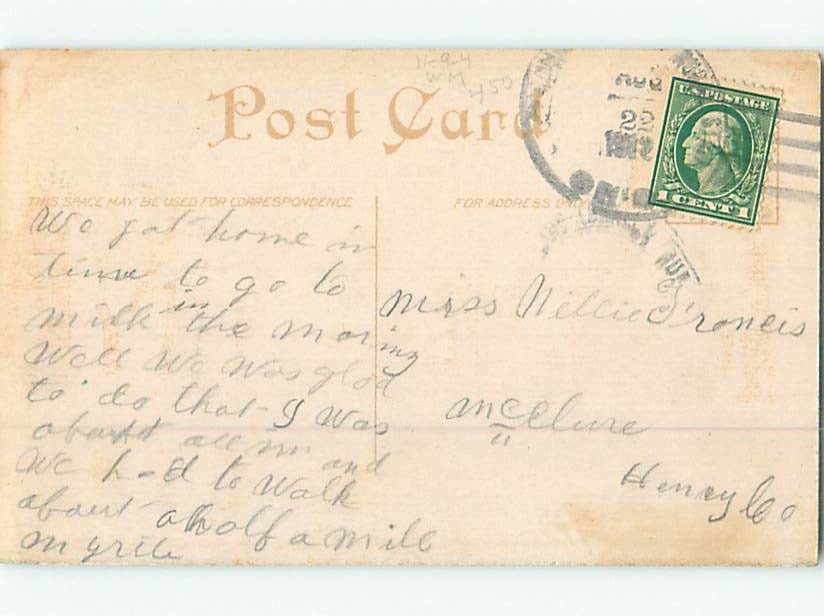 11-9-4
WM
450
Post Card
U.S. POSTAGE
1 CENT 1
22
THIS SPACE MAY BE USED FOR CORRESPONDENCE
FOR ADDRESS ONLY
We got home in
time to go to
milk in the moring
Well We Was glad
to do that - I was
about all in and
We had to Walk
about a half a mile
Myrtle
Miss Nillie Francis
McClure
Henry Co